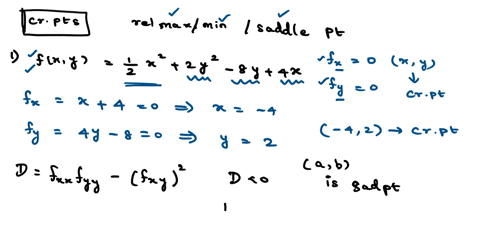 cr.pts rel max/min / saddle pt
1) f(x,y) = 1/2 x² + 2y² - 8y + 4x fx = 0 (x,y)
fy = 0 ↓ cr.pt
fx = x + 4 = 0 ⇒ x = -4
fy = 4y - 8 = 0 ⇒ y = 2 (-4,2) → cr.pt
D = fxx fyy - (fxy)² D < 0 (a,b)
is sad pt